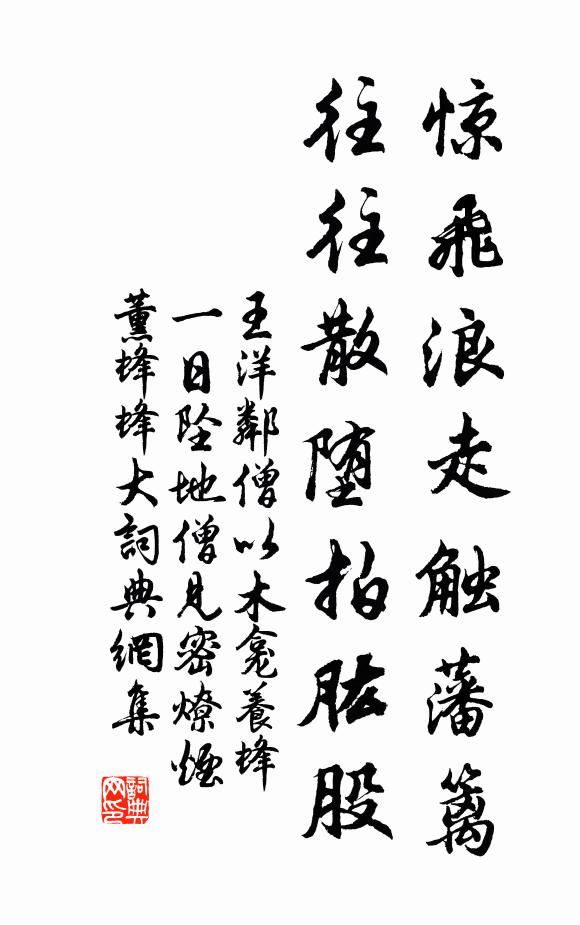 惊飛浪走触藩篱
往往散堕拍肱股
王洋鄰僧以木龛養蜂
一日坠地僧見密燎煙
薰蜂蜂大詞典網集
詞典网印